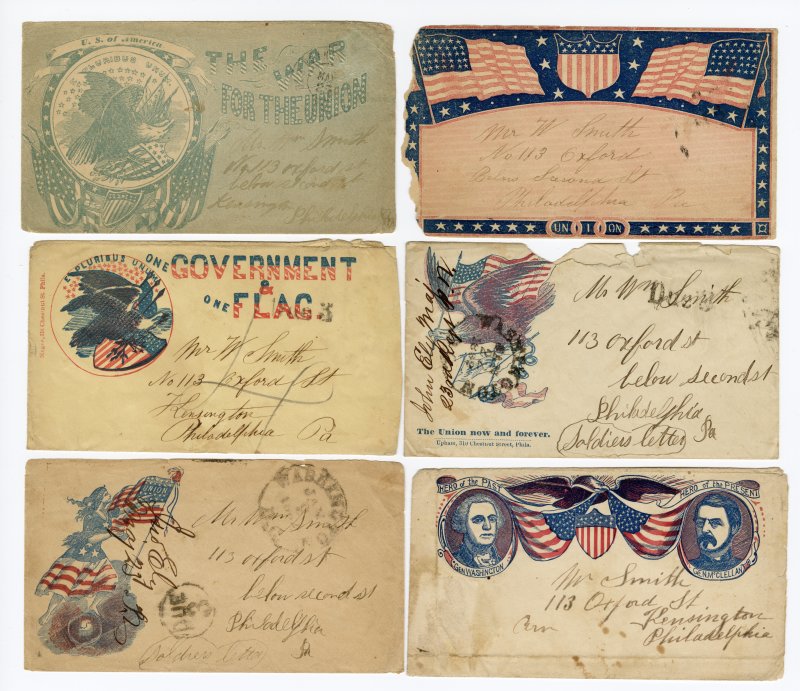 U. S. of America
E PLURIBUS UNUM
THE WAR
FOR THE UNION
MAY
Wm Smith
No 113 Oxford st
below second st
Kensington
Philadelphia Pa
Mr W Smith
No 113 Oxford
Below Second St
Philadelphia Pa
UNION
E PLURIBUS UNUM
ONE
GOVERNMENT
&
ONE FLAG.
Magee, 316 Chestnut St. Phila.
Mr W Smith
No 113 Oxford St
Kensington
Philadelphia Pa
John Ely Maj
23 Regt P. V.
Mr Wm Smith
Due 3
113 Oxford st
below second st
Philadelphia
Soldiers letter Pa
The Union now and forever.
Upham, 310 Chestnut Street, Phila.
UNION
John Ely
Mr Wm Smith
113 Oxford st
below second st
DUE 3
Philadelphia
Soldiers letter Pa
HERO of the PAST
HERO of the PRESENT
GEN WASHINGTON
GE.N. McCLELLAN
Mr Smith
113 Oxford St
Kensington
Philadelphia